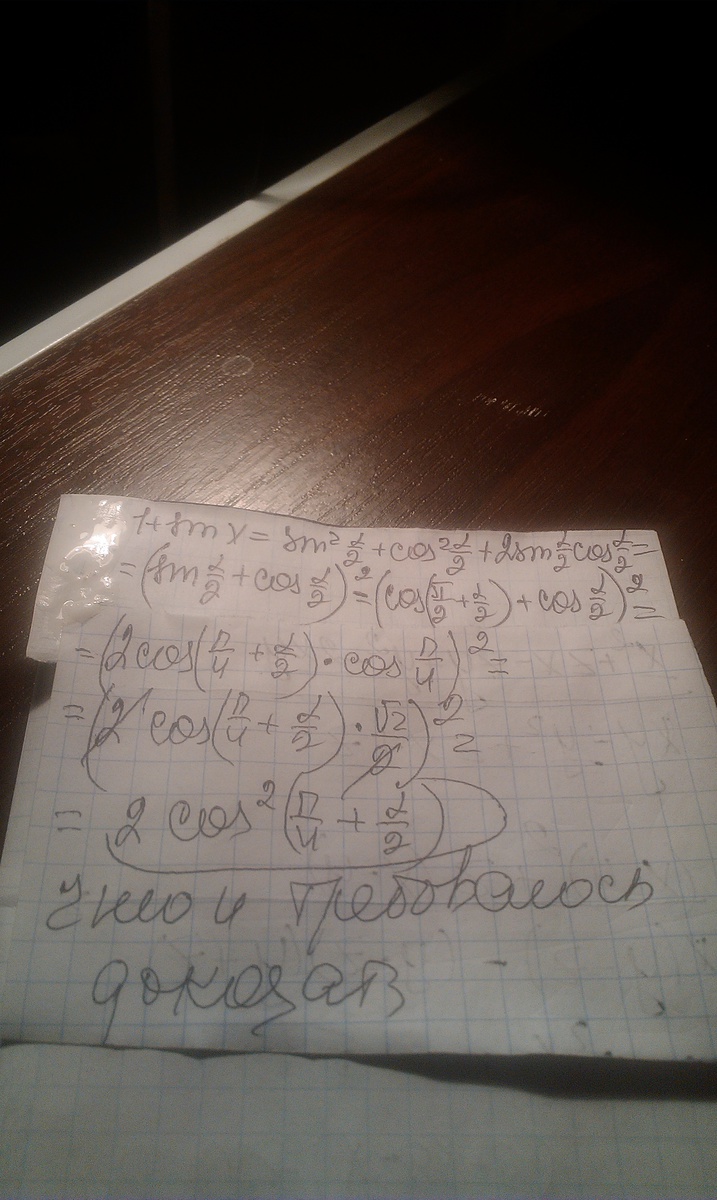 1+sin x = sin² α/2 + cos² α/2 + 2 sin α/2 cos α/2 =
= (sin α/2 + cos α/2)² = (cos(π/2 + α/2) + cos α/2)² =
= (2cos(π/4 + α/2) · cos π/4)² =
= (2 cos(π/4 + α/2) · √2/2)² =
= 2 cos² (π/4 + α/2)
что и требовалось
доказать